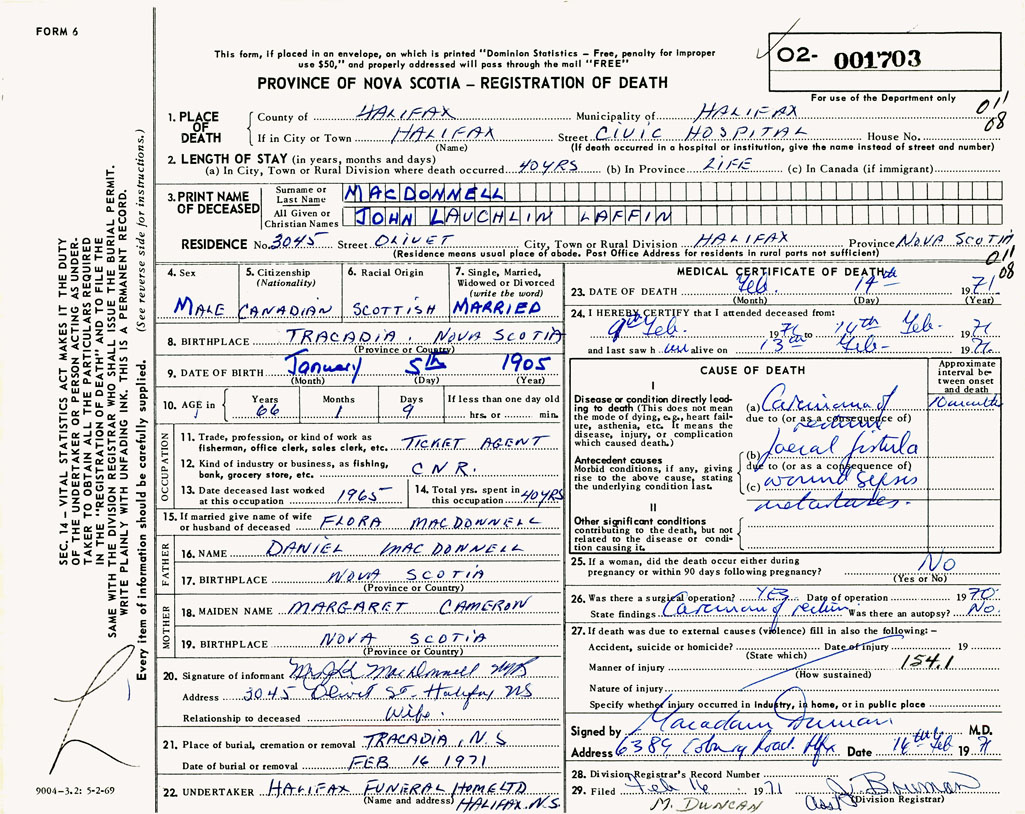 FORM 6
This form, if placed in an envelope, on which is printed "Dominion Statistics – Free, penalty for improper
use $50," and properly addressed will pass through the mail "FREE"
O2- 001703
PROVINCE OF NOVA SCOTIA – REGISTRATION OF DEATH
For use of the Department only
011
08
1. PLACE OF DEATH
County of HALIFAX Municipality of HALIFAX
If in City or Town HALIFAX Street CIVIC HOSPITAL House No.
(Name) (If death occurred in a hospital or institution, give the name instead of street and number)
2. LENGTH OF STAY (in years, months and days)
(a) In City, Town or Rural Division where death occurred 40 YRS (b) In Province LIFE (c) In Canada (if immigrant)
3. PRINT NAME OF DECEASED
Surname or Last Name MACDONNELL
All Given or Christian Names JOHN LAUCHLIN LAFFIN
RESIDENCE No. 3045 Street OLIVET City, Town or Rural Division HALIFAX Province NOVA SCOTIA
(Residence means usual place of abode. Post Office Address for residents in rural parts not sufficient)
011
08
4. Sex
MALE
5. Citizenship (Nationality)
CANADIAN
6. Racial Origin
SCOTTISH
7. Single, Married, Widowed or Divorced (write the word)
MARRIED
8. BIRTHPLACE TRACADIA, NOVA SCOTIA
(Province or Country)
9. DATE OF BIRTH January 5th 1905
(Month) (Day) (Year)
10. AGE in Years 66 Months 1 Days 9 If less than one day old hrs. or min.
OCCUPATION
11. Trade, profession, or kind of work as
fisherman, office clerk, sales clerk, etc. TICKET AGENT
12. Kind of industry or business, as fishing,
bank, grocery store, etc. C.N.R.
13. Date deceased last worked
at this occupation 1965
14. Total yrs. spent in
this occupation 40 YRS
15. If married give name of wife
or husband of deceased FLORA MACDONNELL
FATHER
16. NAME DANIEL MACDONNELL
17. BIRTHPLACE NOVA SCOTIA
(Province or Country)
MOTHER
18. MAIDEN NAME MARGARET CAMERON
19. BIRTHPLACE NOVA SCOTIA
(Province or Country)
20. Signature of informant MacDonnell
Address 3045 Olivet St. Halifax NS
Relationship to deceased Wife.
21. Place of burial, cremation or removal TRACADIA, N.S
Date of burial or removal FEB 16 1971
22. UNDERTAKER HALIFAX FUNERAL HOME LTD
(Name and address) HALIFAX. N.S.
MEDICAL CERTIFICATE OF DEATH
23. DATE OF DEATH Feb. 14th 1971
(Month) (Day) (Year)
24. I HEREBY CERTIFY that I attended deceased from:
9th Feb. 1971 to 14th Feb. 1971
and last saw him alive on 13th Feb- 1971.
CAUSE OF DEATH
Approximate interval between onset and death
I
Disease or condition directly leading to death (This does not mean the mode of dying, e.g., heart failure, asthenia, etc. It means the disease, injury, or complication which caused death.)
(a) Carcinoma of rectum 10 months
due to (or as a consequence of)
Antecedent causes
Morbid conditions, if any, giving rise to the above cause, stating the underlying condition last.
(b) faecal fistula
due to (or as a consequence of)
(c) wound sepsis
metastases.
II
Other significant conditions
contributing to the death, but not related to the disease or condition causing it.
25. If a woman, did the death occur either during
pregnancy or within 90 days following pregnancy? NO
(Yes or No)
26. Was there a surgical operation? YES Date of operation 1970
State findings Carcinoma of rectum Was there an autopsy? No.
27. If death was due to external causes (violence) fill in also the following: –
Accident, suicide or homicide? Date of injury 19
(State which)
Manner of injury 154.1
(How sustained)
Nature of injury
Specify whether injury occurred in industry, in home, or in public place
Signed by Macadam Duncan M.D.
Address 6389 Coburg Road. Hfx Date 14th Feb 1971
28. Division Registrar's Record Number
29. Filed Feb 16 1971
(Division Registrar)
M. DUNCAN
SEC. 14 – VITAL STATISTICS ACT MAKES IT THE DUTY
OF THE UNDERTAKER OR PERSON ACTING AS UNDER-
TAKER TO OBTAIN ALL THE PARTICULARS REQUIRED
IN THE "REGISTRATION OF DEATH" AND TO FILE THE
SAME WITH THE DIVISION REGISTRAR WHO SHALL ISSUE THE BURIAL PERMIT.
WRITE PLAINLY WITH UNFADING INK. THIS IS A PERMANENT RECORD.
Every item of information should be carefully supplied. (See reverse side for instructions.)
9004–3.2: 5-2-69